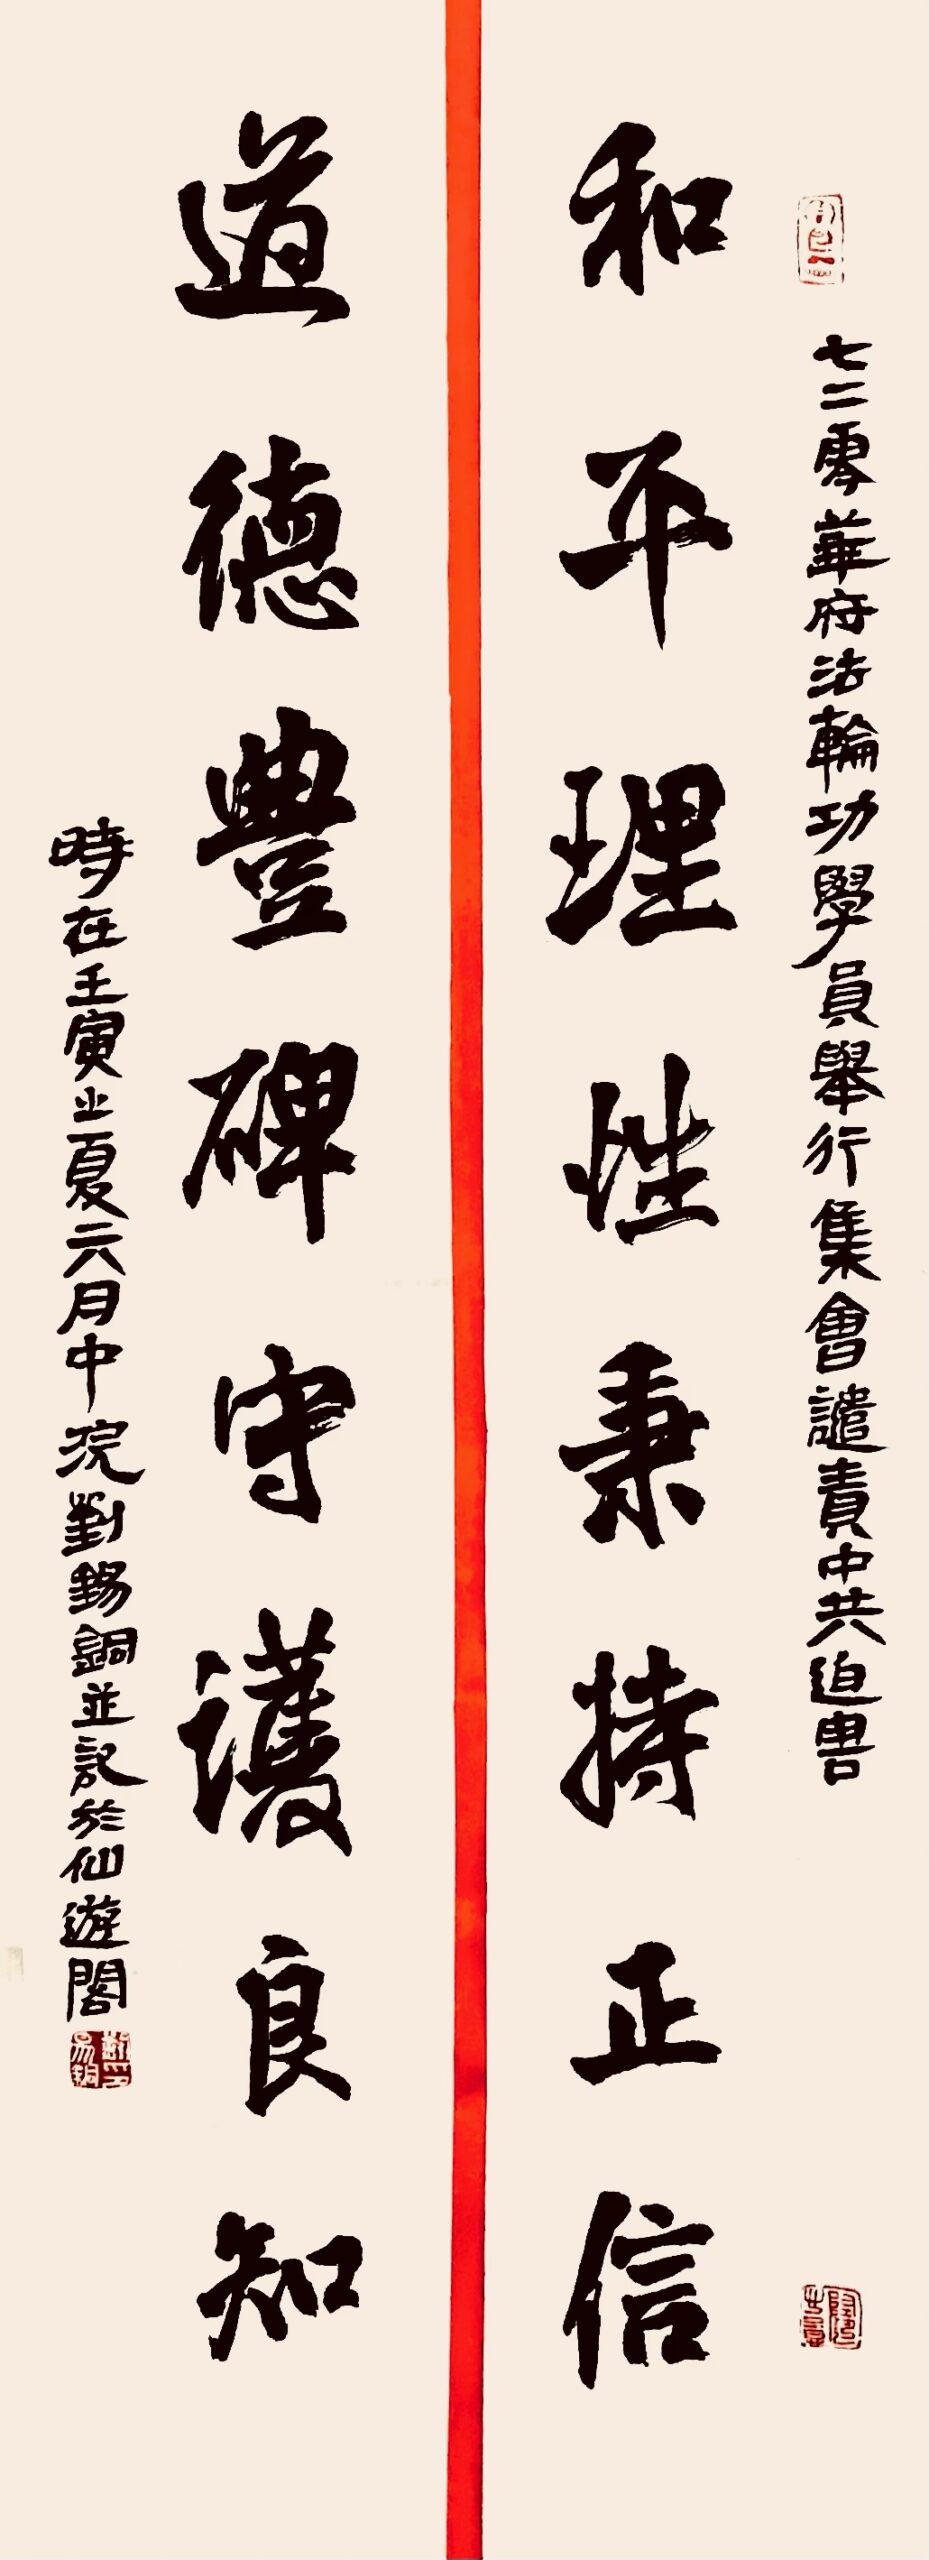 七二零華府法輪功學員舉行集會譴責中共迫害
和平理性秉持正信
道德豊碑守護良知
時在壬寅之夏六月中浣劉錫銅並記於仙遊閣